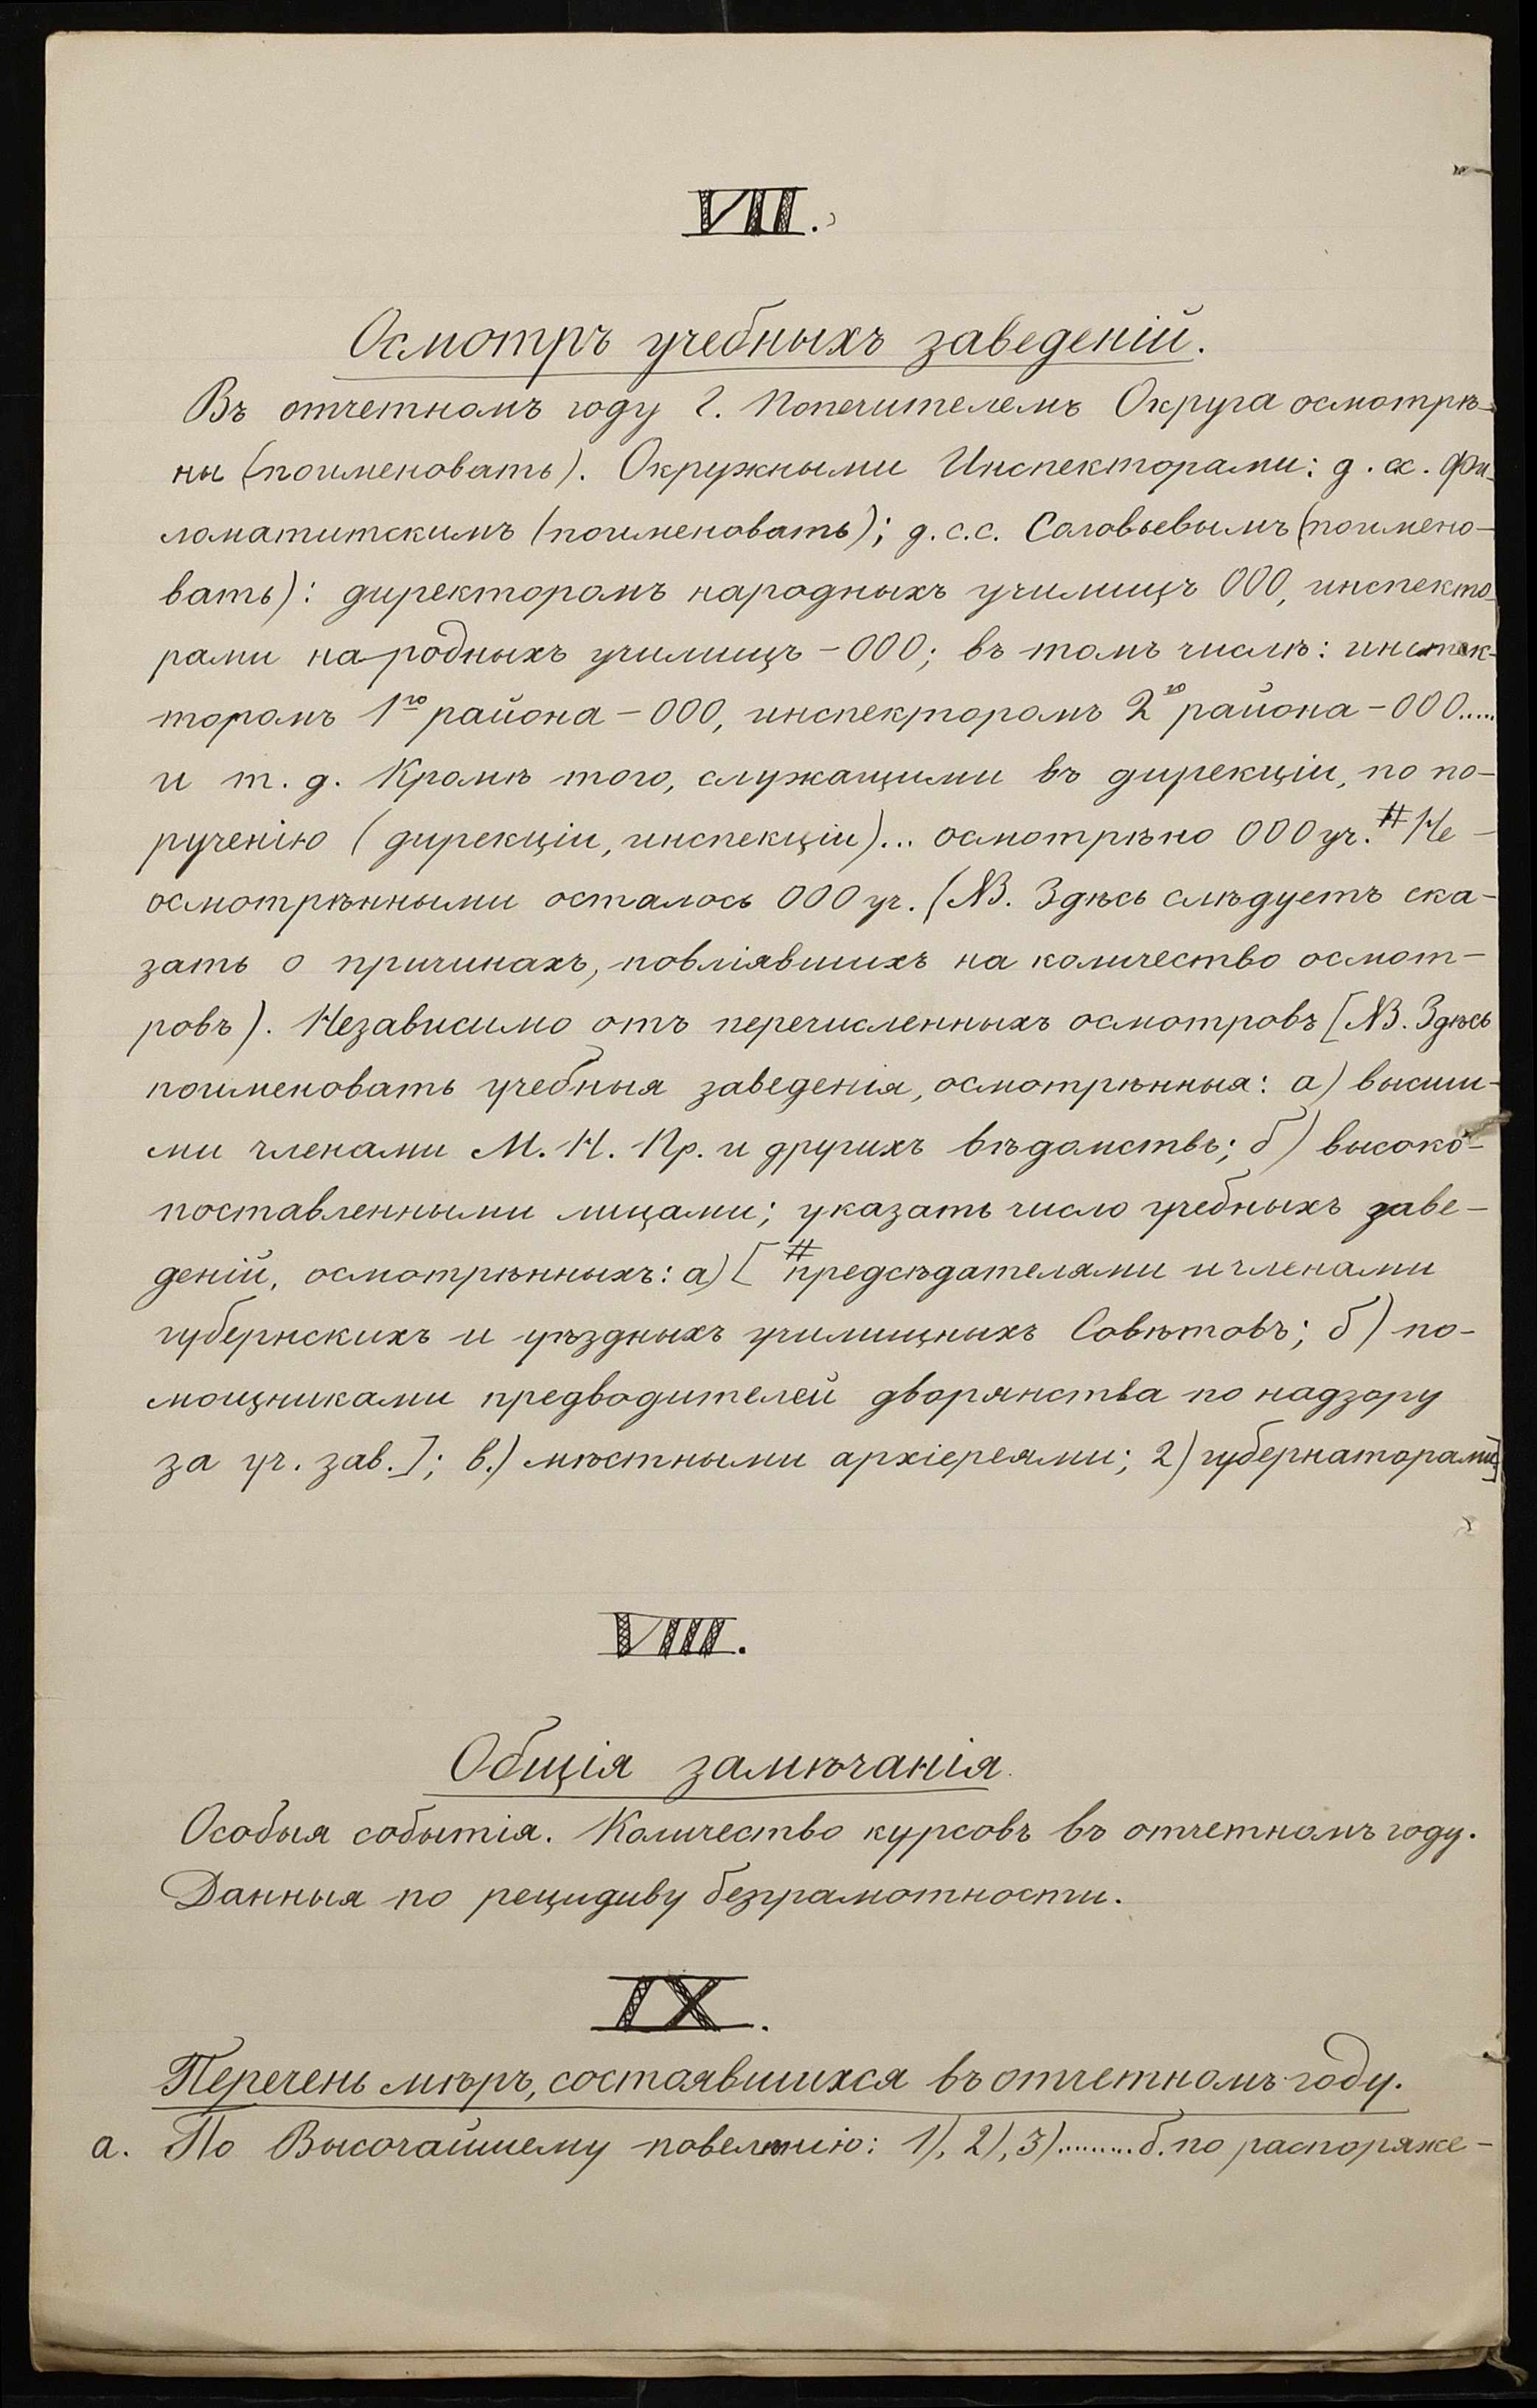 VII.
Осмотръ учебныхъ заведеній.
Въ отчетномъ году г. Попечителемъ Округа осмотрѣ-
ны (поименовать). Окружными Инспекторами: д. с. с. Фи-
ломатитскимъ (поименовать); д. с. с. Соловьевымъ (поимено-
вать): директоромъ народныхъ училищъ 000, инспекто-
рами народныхъ училищъ - 000; въ томъ числѣ: инспек-
торомъ 1го района - 000, инспекторомъ 2го района - 000.....
и т. д. Кромѣ того, служащими въ дирекціи, по по-
рученію (дирекціи, инспекціи)... осмотрѣно 000 уч. # Не-
осмотрѣнными осталось 000 уч. (NB. Здѣсь слѣдуетъ ска-
зать о причинахъ, повліявшихъ на количество осмот-
ровъ). Независимо отъ перечисленныхъ осмотровъ [NB. Здѣсь
поименовать учебныя заведенія, осмотрѣнныя: а) высши-
ми членами М. Н. Пр. и другихъ вѣдомствъ; б) высоко-
поставленными лицами; указать число учебныхъ заве-
деній, осмотрѣнныхъ: а) [ # предсѣдателями и членами
губернскихъ и уѣздныхъ училищныхъ Совѣтовъ; б) по-
мощниками предводителей дворянства по надзору
за уч. зав.]; в.) мѣстными архіереями; г) губернаторами]
VIII.
Общія замѣчанія.
Особыя событія. Количество курсовъ въ отчетномъ году.
Данныя по рецидиву безграмотности.
IX.
Перечень мѣръ, состоявшихся въ отчетномъ году.
а. По Высочайшему повелѣнію: 1), 2), 3)......... б. по распоряже-